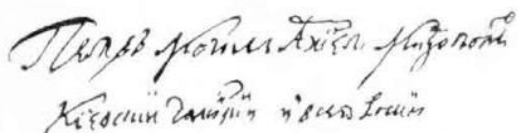 Петръ Могила Архіеп Митрополи
Кіевскій Галицкій и всея Росіи